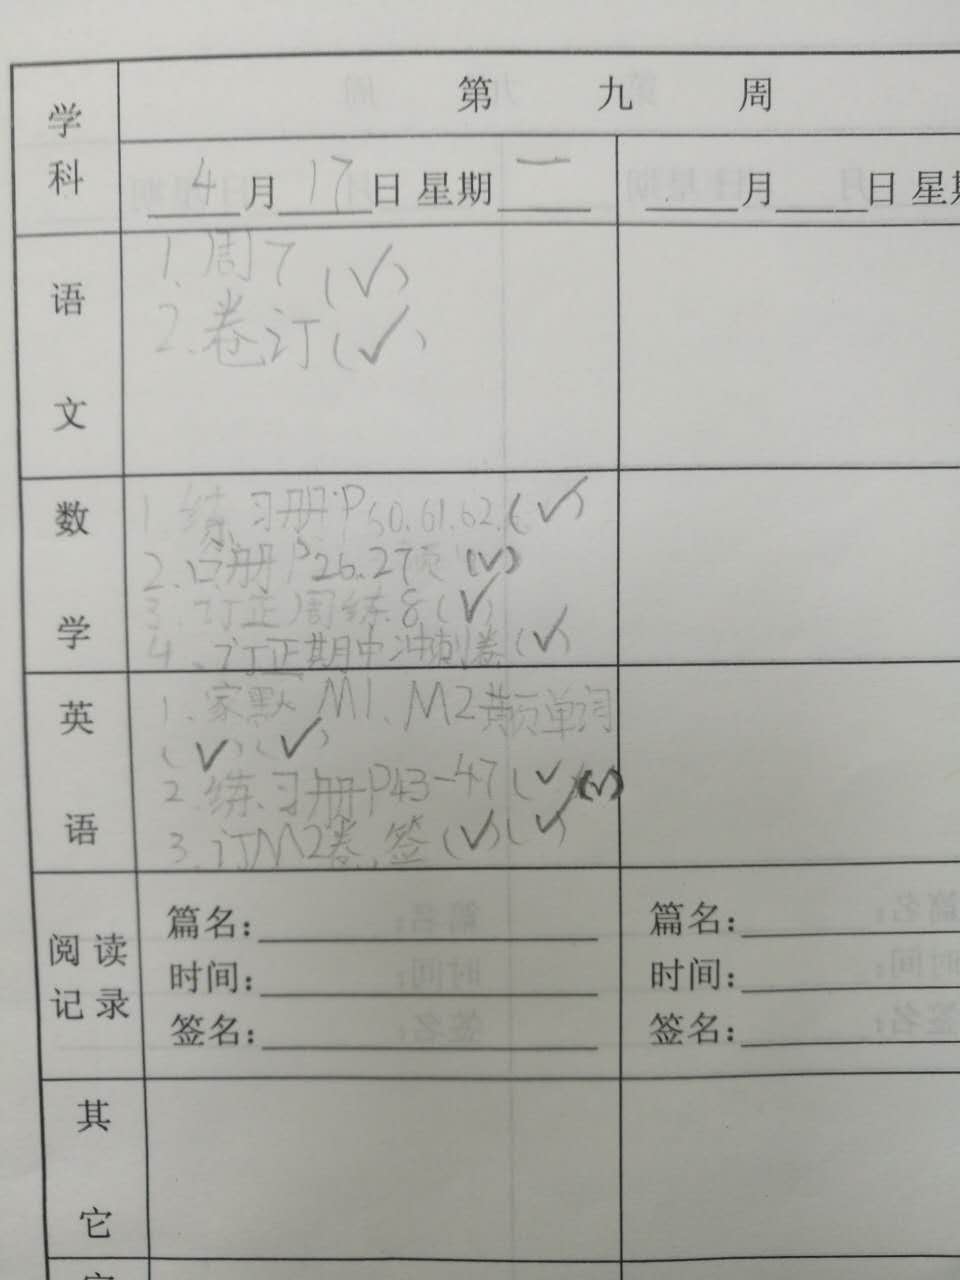 学科
第 九 周
4月17日 星期一
月 日 星期
语文
1.周7 (✓)
2.卷订(✓)
数学
1.练习册P50.61.62.(✓)
2.口册P26.27页 (✓)
3.订正周练8(✓)
4.订正期中冲刺卷(✓)
英语
1.家默M1、M2黄页单词
(✓)(✓)
2.练习册P43-47(✓)(✓)
3.订M2卷,签(✓)(✓)
阅读记录
篇名:
时间:
签名:
篇名:
时间:
签名:
其它